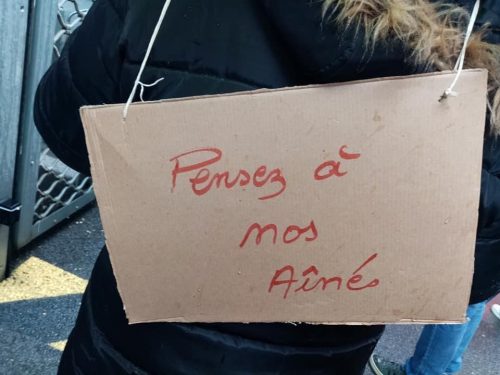 Pensez à
nos
Aînés